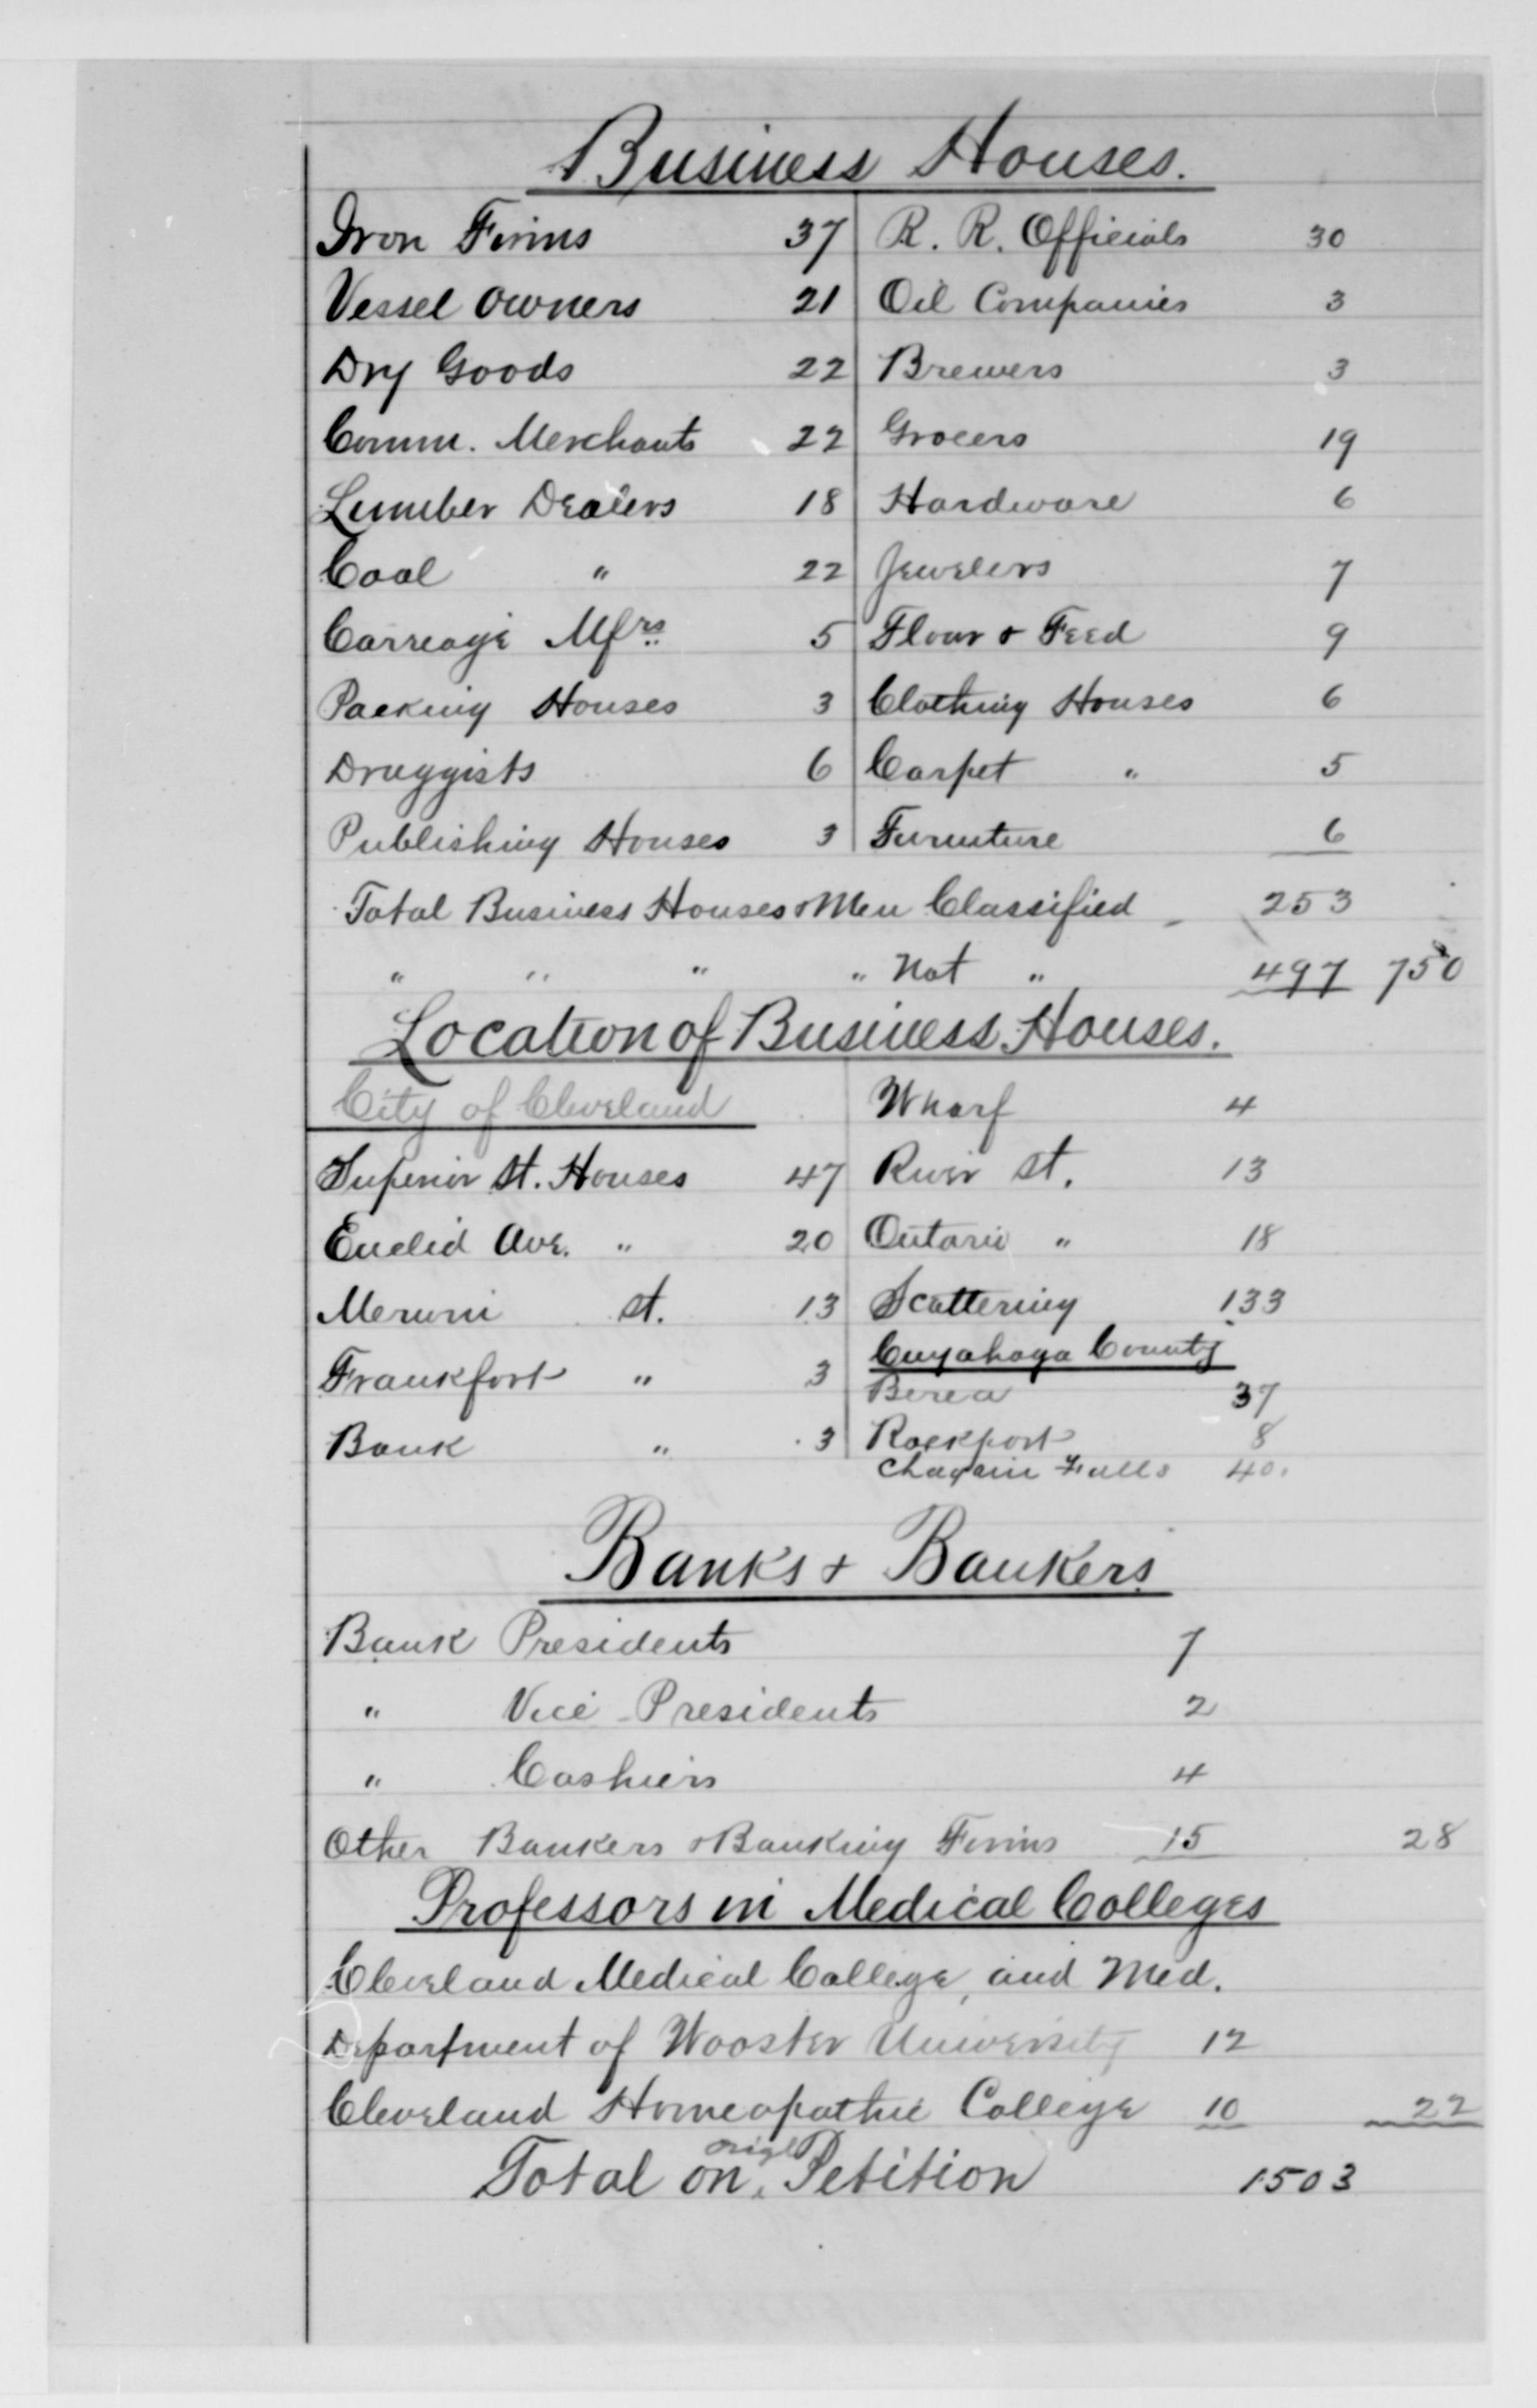 Business Houses.
Iron Firms 37 R. R. Officials 30
Vessel Owners 21 Oil Companies 3
Dry Goods 22 Brewers 3
Comm. Merchants 22 Grocers 19
Lumber Dealers 18 Hardware 6
Coal " 22 Jewelers 7
Carreage Mfrs 5 Flour & Feed 9
Packing Houses 3 Clothing Houses 6
Druggists 6 Carpet " 5
Publishing Houses 3 Furniture 6
Total Business Houses & Men Classified 253
" " " " Not " 497 750
Location of Business Houses.
City of Cleveland Wharf 4
Superior St. Houses 47 River St. 13
Euclid Ave. " 20 Ontario " 18
Merwin St. 13 Scattering 133
Cuyahoga County
Frankfort " 3 Berea 37
Bank " 3 Rockport 8
Chagrin Falls 40.
Banks & Bankers
Bank Presidents 7
" Vice Presidents 2
" Cashiers 4
Other Bankers & Banking Firms 15 28
Professors in Medical Colleges
Cleveland Medical College, and Med.
Department of Wooster University 12
Cleveland Homeopathic College 10 22
Total on origl Petition 1503